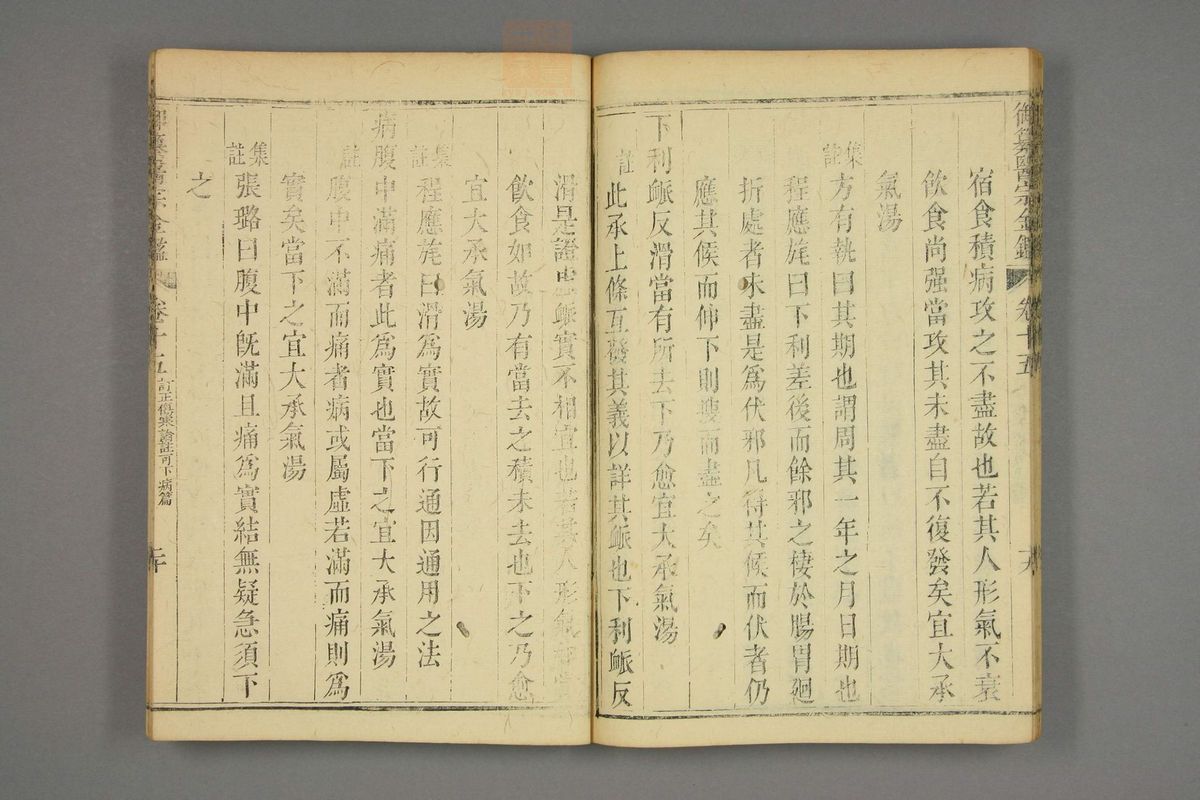 御纂醫宗金鑑 卷十五
宿食積病攻之不盡故也若其人形氣不衰
飲食尚强當攻其未盡自不復發矣宜大承
氣湯
集註
方有執曰其期也謂周其一年之月日期也
程應旄曰下利差後而餘邪之棲於腸胃廻
折處者未盡是為伏邪凡得其候而伏者仍
應其候而伸下則搜而盡之矣
下利脈反滑當有所去下乃愈宜大承氣湯
註
此承上條互發其義以詳其脈也下利脈反
滑是證虛脈實不相宜也若其人形氣如常
飲食如故乃有當去之積未去也下之乃愈
宜大承氣湯
集註
程應旄曰滑為實故可行通因通用之法
病腹中滿痛者此為實也當下之宜大承氣湯
註
腹中不滿而痛者病或屬虛若滿而痛則為
實矣當下之宜大承氣湯
集註
張璐曰腹中既滿且痛為實結無疑急須下
之
御纂醫宗金鑑 卷十五 訂正傷寒論註可下病篇